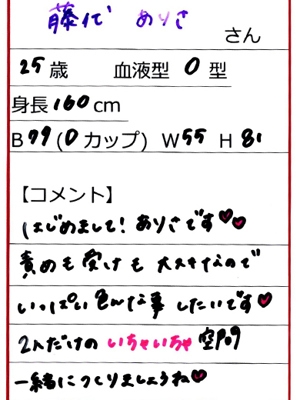 藤代 ありさ さん
25歳 血液型 O型
身長160cm
B79(Dカップ) W55 H81
【コメント】
はじめまして!ありさです♥♥
責めも受けも大好きなので
いっぱい色んな事したいです♥
2人だけのいちゃいちゃ空間
一緒につくりましょうね♥